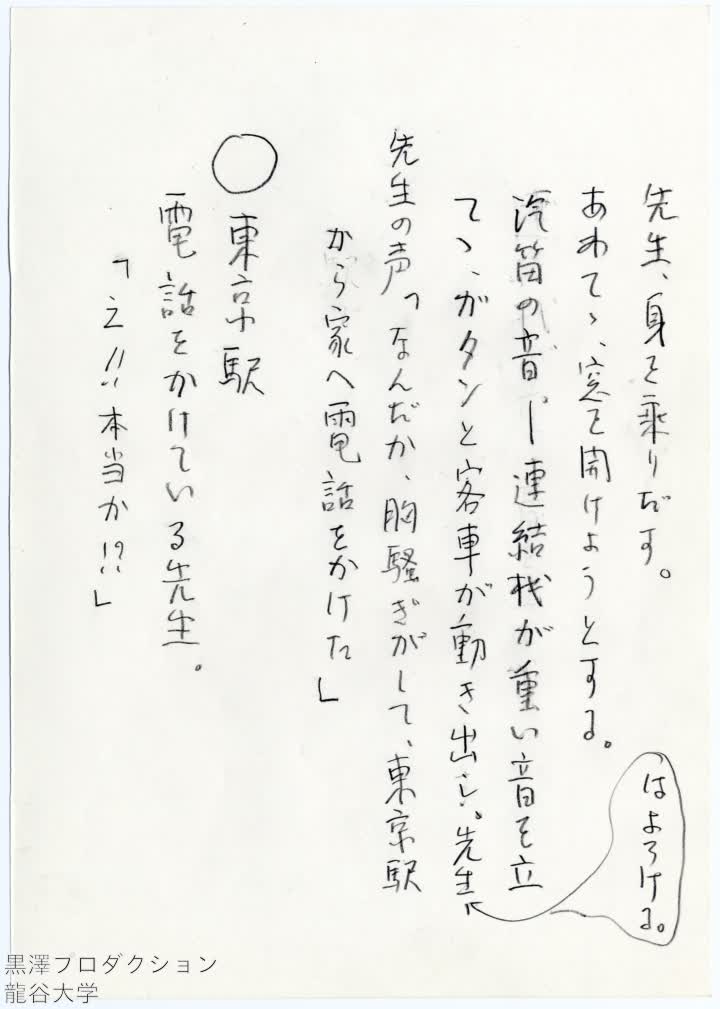 先生、身を乗りだす。
あわてゝ、窓を開けようとする。
汽笛の音――連結機が重い音を立
てゝ、ガタンと客車が動き出し。先生
はよろける。
先生の声「なんだか、胸騒ぎがして、東京駅
から家へ電話をかけた」
○ 東京駅
電話をかけている先生。
「え!!本当か!?」
黒澤プロダクション
龍谷大学